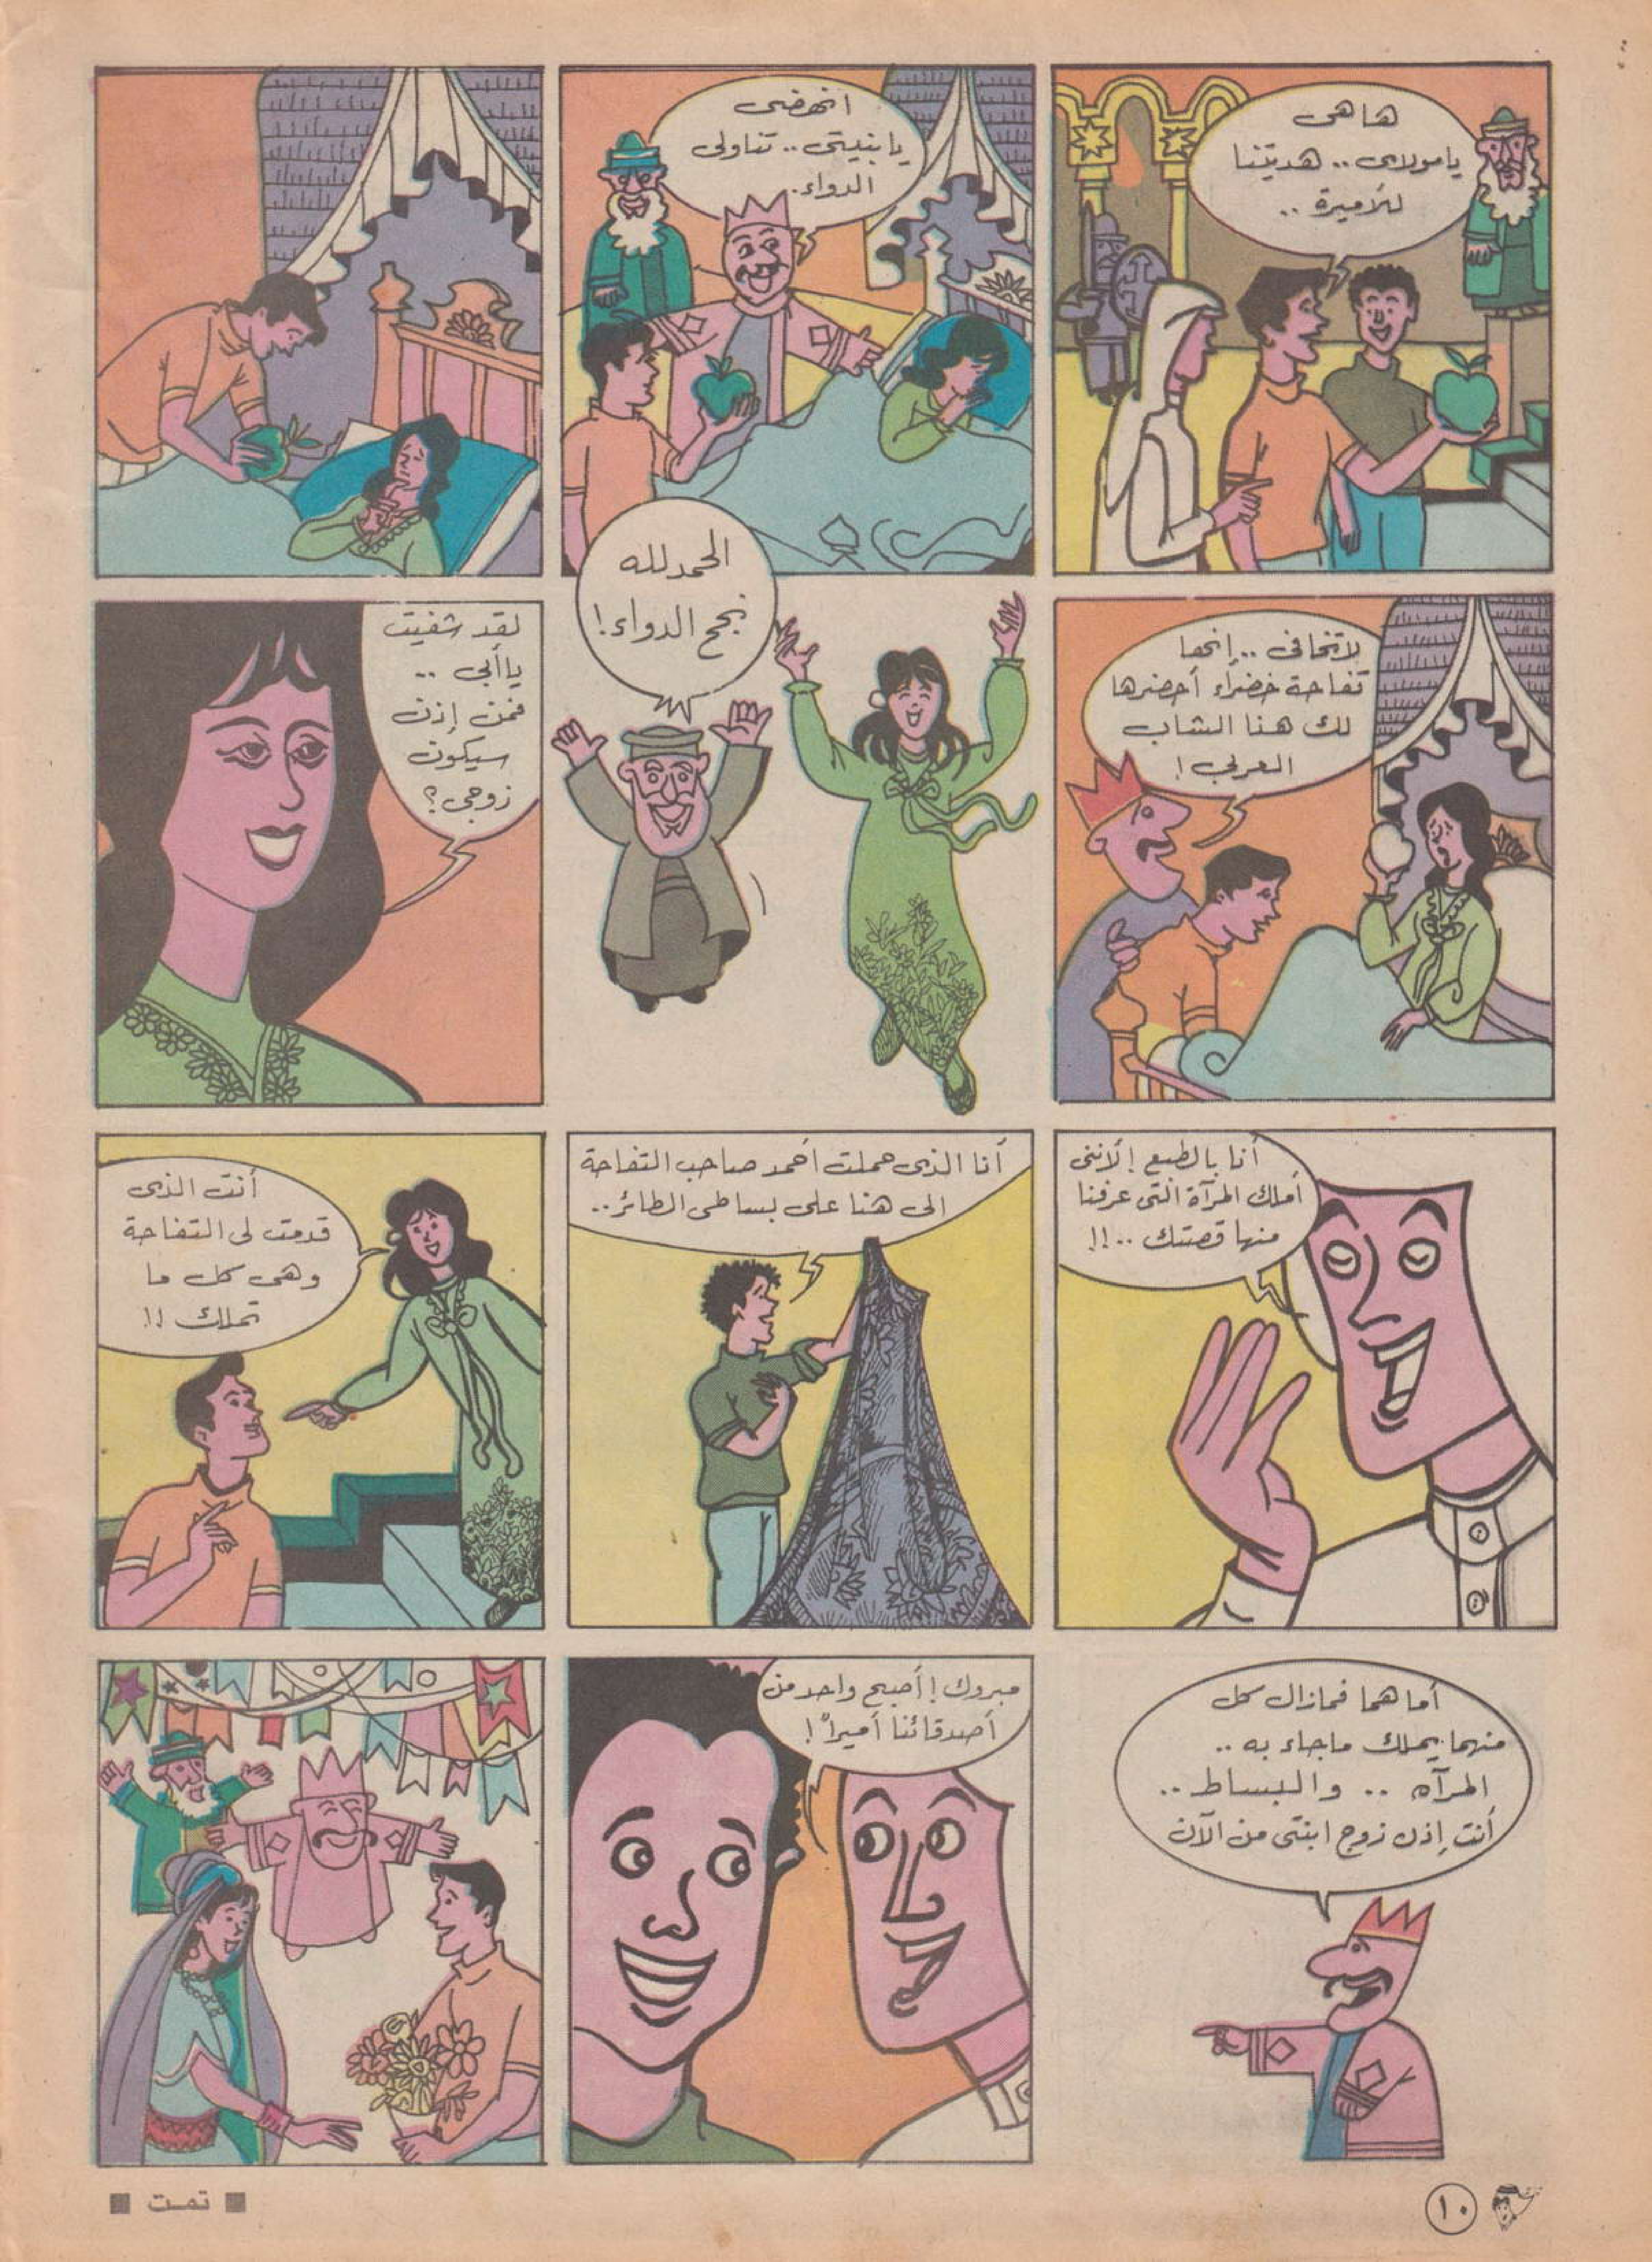 ها هى
يا مولاى .. هديتنا
للأميرة ..
انهضى
يا بنيتى .. تناولى
الدواء.
لا تخافى .. إنها
تفاحة خضراء أحضرها
لك هذا الشاب
العربى !
الحمد لله
نجح الدواء !
لقد شفيت
يا أبى ..
فمن إذن
سيكون
زوجى ؟
أنا بالطبع ! لأننى
أملك المرآة التى عرفنا
منها قصتك .. !!
أنا الذى حملت أحمد صاحب التفاحة
الى هنا على بساطى الطائر ..
أنت الذى
قدمت لى التفاحة
وهى كل ما
تملك !!
أما هما فمازال كل
منهما يملك ماجاء به ..
المرآه .. والبساط ..
أنت إذن زوج ابنتى من الآن
مبروك ! أصبح واحد من
أصدقائنا أميراً !
١٠
■ تمت ■